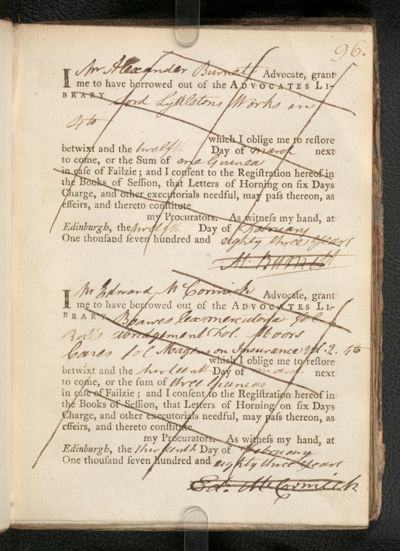 96.
I Mr Alexander Burnet Advocate, grant
me to have borrowed out of the ADVOCATES LI-
BRARY Lord Lyttletons Works in
4to
which I oblige me to reſtore
betwixt and the twelfth Day of March next
to come, or the Sum of one Guinea
in caſe of Failzie; and I conſent to the Regiſtration hereof in
the Books of Seſſion, that Letters of Horning on ſix Days
Charge, and other executorials needful, may paſs thereon, as
effeirs, and thereto conſtitute
my Procurators. As witneſs my hand, at
Edinburgh, the twelfth Day of February
One thouſand ſeven hundred and eighty three years
Al: Burnet
I Mr Edward McCormick Advocate, grant
me to have borrowed out of the ADVOCATES LI-
BRARY Beawes Lex mercatoria
Rolls abridgement vol. Moor
Cases Magens on Insurance vol. 2. 4to
which I oblige me to reſtore
betwixt and the thirteenth Day of March next
to come, or the ſum of three Guineas
in caſe of Failzie; and I conſent to the Regiſtration hereof in
the Books of Seſſion, that Letters of Horning on ſix Days
Charge, and other executorials needful, may paſs thereon, as
effeirs, and thereto conſtitute
my Procurators. As witneſs my hand, at
Edinburgh, the thirteenth Day of February
One thouſand ſeven hundred and eighty three years
Ed: McCormick